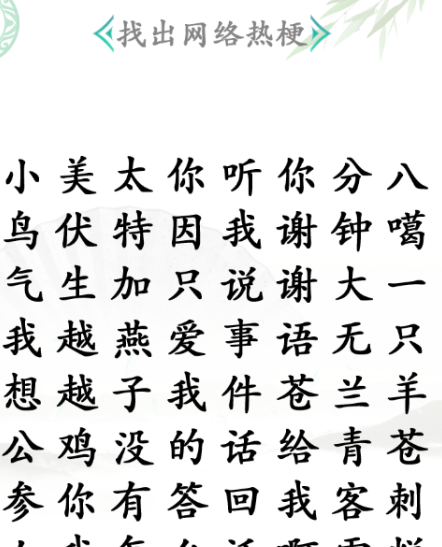 找出网络热梗
小美太你听你分八
鸟伏特因我谢钟噶
气生加只说谢大一
我越燕爱事语无只
想越子我件苍兰羊
公鸡没的话给青苍
参你有答回我客刺